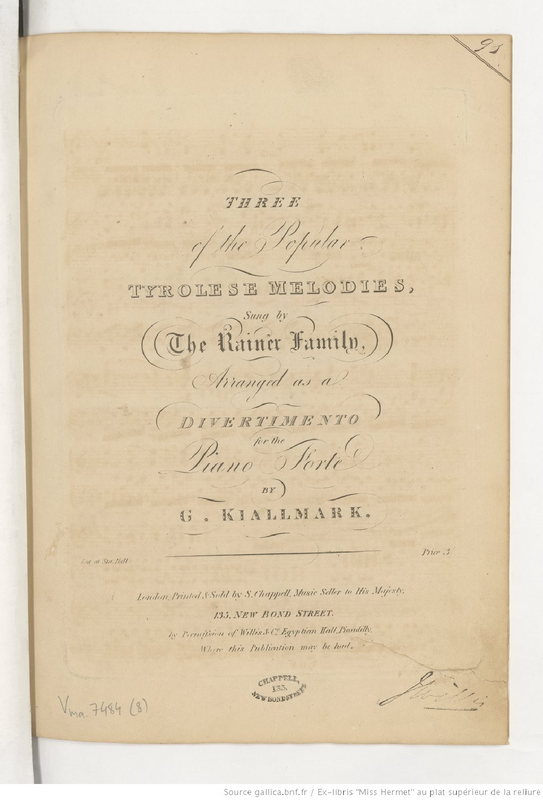 91
THREE
of the Popular
TYROLESE MELODIES,
Sung by
The Rainer Family,
Arranged as a
DIVERTIMENTO
for the
Piano Forte
BY
G. KIALLMARK.
Ent. at Sta. Hall
Price 3
London, Printed & Sold by S. Chappell, Music Seller to His Majesty,
135, NEW BOND STREET.
by Permission of Willis & Co. Egyptian Hall, Picadilly,
Where this Publication may be had.
CHAPPELL,
135,
NEW BOND STREET
JWillis
Vma. 7484 (8)
Source gallica.bnf.fr / Ex-libris "Miss Hermet" au plat supérieur de la reliure